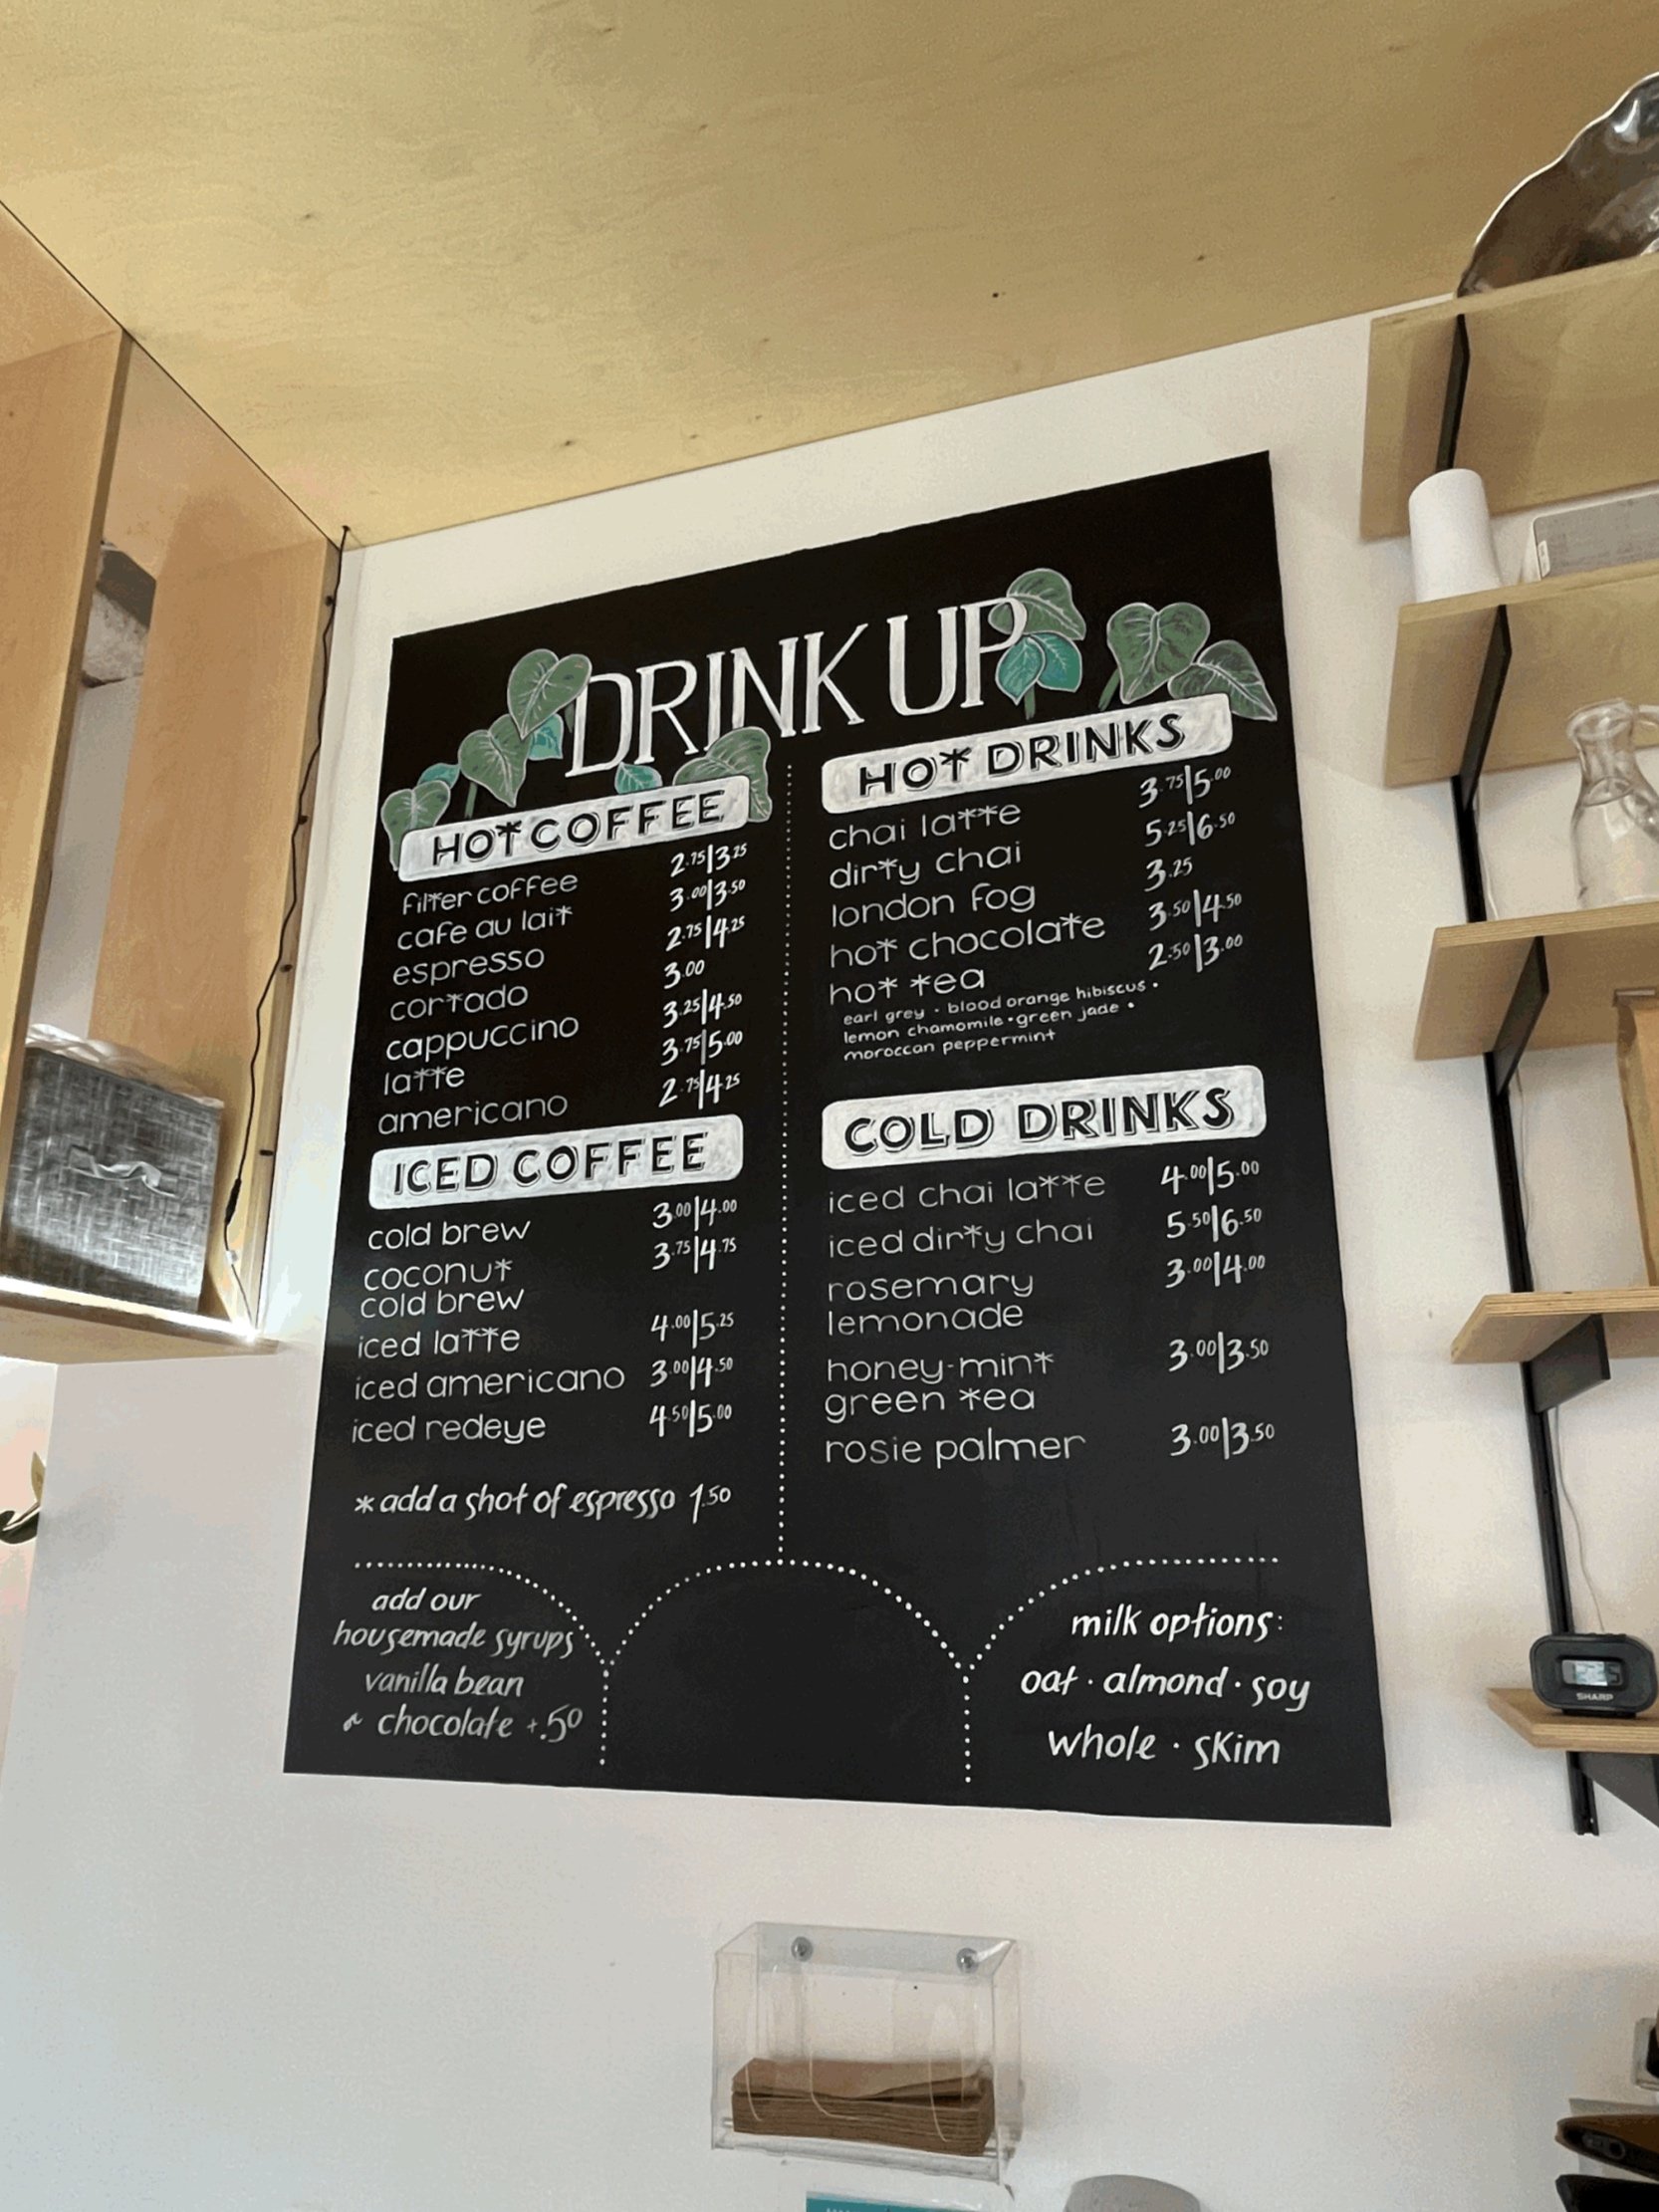 DRINK UP
HOT COFFEE
filter coffee 2.75|3.25
cafe au lait 3.00|3.50
espresso 2.75|4.25
cortado 3.00
cappuccino 3.25|4.50
latte 3.75|5.00
americano 2.75|4.25
ICED COFFEE
cold brew 3.00|4.00
coconut 3.75|4.75
cold brew
iced latte 4.00|5.25
iced americano 3.00|4.50
iced redeye 4.50|5.00
*add a shot of espresso 1.50
HOT DRINKS
chai latte 3.75|5.00
dirty chai 5.25|6.50
london fog 3.25
hot chocolate 3.50|4.50
hot tea 2.50|3.00
earl grey · blood orange hibiscus ·
lemon chamomile · green jade ·
moroccan peppermint
COLD DRINKS
iced chai latte 4.00|5.00
iced dirty chai 5.50|6.50
rosemary 3.00|4.00
lemonade
honey-mint 3.00|3.50
green tea
rosie palmer 3.00|3.50
add our
housemade syrups
vanilla bean
chocolate +.50
milk options:
oat · almond · soy
whole · skim
SHARP